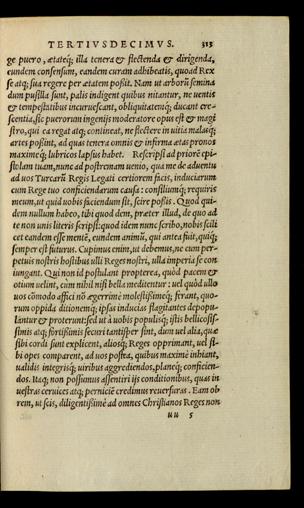 TERTIVS DECIMVS. 313
ge puero, ætateq́; illa tenera & flectenda & dirigenda,
eundem consensum, eandem curam adhibeatis, quoad Rex
se atq; sua regere per ætatem possit. Nam ut arborũ semina
dum pusilla sunt, palis indigent quibus nitantur, ne uentis
& tempestatibus incuruescant, obliquitatemq́; ducant cre-
scentia, sic puerorum ingenijs moderatore opus est & magi
stro, qui ea regat atq; contineat, ne flectere in uitia malasq́;
artes possint, ad quas tenera omnis & infirma ætas pronos
maximeq́; lubricos lapsus habet. Rescripsi ad priorẽ epi-
stolam tuam, nunc ad postremam uenio, qua me de aduentu
ad uos Turcarũ Regis Legati certiorem facis, induciarum
cum Rege tuo conficiendarum causa: consiliumq́; requiris
meum, ut quid uobis faciendum sit, scire possis. Quod qui-
dem nullum habeo, tibi quod dem, præter illud, de quo ad
te non unis literis scripsi: quod idem nunc scribo, nobis scili
cet eandem esse mentẽ, eundem animũ, qui antea fuit, quiq́;
semper est futurus. Cupimus enim, ut debemus, ne cum per-
petuis nostris hostibus ulli Reges nostri, ulla imperia se con
iungant. Qui non id postulant propterea, quòd pacem &
otium uelint, cum nihil nisi bella meditentur: uel quòd ullo
uos cõmodo affici nõ ægerrimè molestissimeq́; ferant, quo-
rum oppida ditionemq́; ipsas inducias flagitantes depopu-
lantur & proterunt: sed ut à uobis populisq́; istis bellicosis-
simis atq; fortissimis securi tantisper sint, dum uel alia, quæ
sibi cordi sunt explicent, aliosq́; Reges opprimant, uel si-
bi opes comparent, ad uos postea, quibus maximè inhiant,
ualidis integrisq́; uiribus aggrediendos, planeq́; conficien-
dos. Itaq; non possumus assentiri ijs conditionibus, quas in
uestras ceruices atq; perniciẽ credimus reuersuras. Eam ob
rem, ut scis, diligentissimè ad omnes Christianos Reges non
uu 5